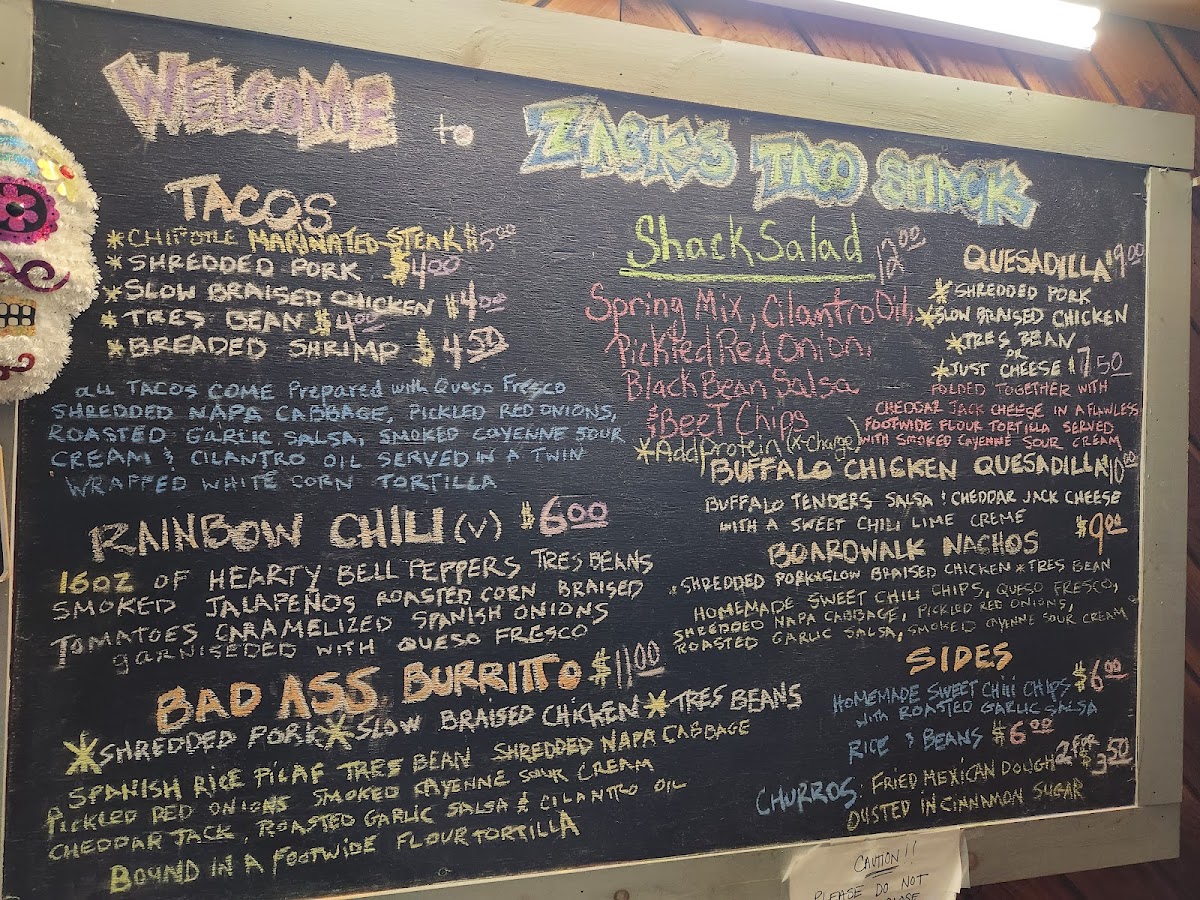 WELCOME to ZACK'S TACO SHACK
TACOS
*CHIPOTLE MARINATED STEAK $5.00
*SHREDDED PORK $4.00
*SLOW BRAISED CHICKEN $4.00
*TRES BEAN $4.00
*BREADED SHRIMP $4.50
ALL TACOS COME Prepared with Queso Fresco
SHREDDED NAPA CABBAGE, PICKLED RED ONIONS,
ROASTED GARLIC SALSA, SMOKED CAYENNE SOUR
CREAM & CILANTRO OIL SERVED IN A TWIN
WRAPPED WHITE CORN TORTILLA
RAINBOW CHILI (V) $6.00
16OZ OF HEARTY BELL PEPPERS TRES BEANS
SMOKED JALAPEÑOS ROASTED CORN BRAISED
TOMATOES CARAMELIZED SPANISH ONIONS
GARNISEDED WITH QUESO FRESCO
BAD ASS BURRITTO $11.00
*SHREDDED PORK *SLOW BRAISED CHICKEN *TRES BEANS
SPANISH RICE PILAF TRES BEAN SHREDDED NAPA CABBAGE
PICKLED RED ONIONS SMOKED CAYENNE SOUR CREAM
CHEDDAR JACK, ROASTED GARLIC SALSA & CILANTRO OIL
BOUND IN A FOOTWIDE FLOUR TORTILLA
Shack Salad 12.00
Spring Mix, Cilantro Oil,
Pickled Red Onion,
Black Bean Salsa
& Beet Chips
*Add protein (x-charge)
QUESADILLA $9.00
*SHREDDED PORK
*SLOW BRAISED CHICKEN
*TRES BEAN
OR
*JUST CHEESE $7.50
FOLDED TOGETHER WITH
CHEDDAR JACK CHEESE IN A FLAWLESS
FOOTWIDE FLOUR TORTILLA SERVED
WITH SMOKED CAYENNE SOUR CREAM
BUFFALO CHICKEN QUESADILLA $10.00
BUFFALO TENDERS SALSA & CHEDDAR JACK CHEESE
WITH A SWEET CHILI LIME CREME
BOARDWALK NACHOS $9.00
*SHREDDED PORK *SLOW BRAISED CHICKEN *TRES BEAN
HOMEMADE SWEET CHILI CHIPS, QUESO FRESCO,
SHREDDED NAPA CABBAGE, PICKLED RED ONIONS,
ROASTED GARLIC SALSA, SMOKED CAYENNE SOUR CREAM
SIDES
HOMEMADE SWEET CHILI CHIPS $6.00
WITH ROASTED GARLIC SALSA
RICE & BEANS $6.00
CHURROS: FRIED MEXICAN DOUGH 2 FOR $3.50
DUSTED IN CINNAMON SUGAR
CAUTION!!
PLEASE DO NOT